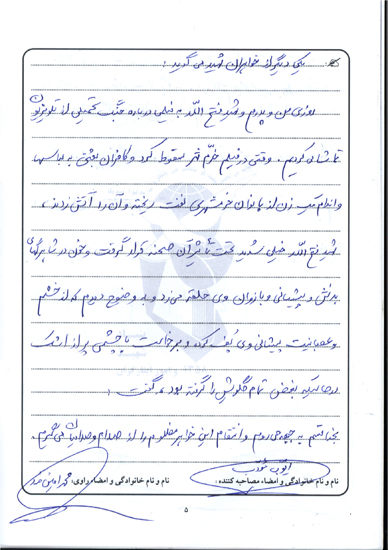 یکی دیگر از خواهران شهید می گوید :
روزی من و پدرم و شهید فتح الله به فیلمی درباره جنگ تحمیلی از تلویزیون
تماشا می کردیم . وقتی در فیلم خرّم شهر سقوط کرد و کافران بعثی به لباسها
و اندام یک زن از بانوان خرمشهری نفت ریخته و آن را آتش زدند ،
شهید فتح الله خیلی شدید تحت تأثیر آن صحنه قرار گرفت و خون در شاهرگهای
بدنش و پیشانی و بازوان وی حلقه می زد و به وضوح دیدم که از خشم
و عصبانیت پیشانی وی پُف کرد و برخاست با چشمی پر از اشک
در حالیکه بغض تمام گلویش را گرفته بود ، گفت :
بخدا قسم به جبهه می روم و انتقام این خواهر مظلوم را از صدام و صدامیان می گیرم .
نام و نام خانوادگی و امضاء مصاحبه کننده :
نام و نام خانوادگی و امضاء راوی :
۵